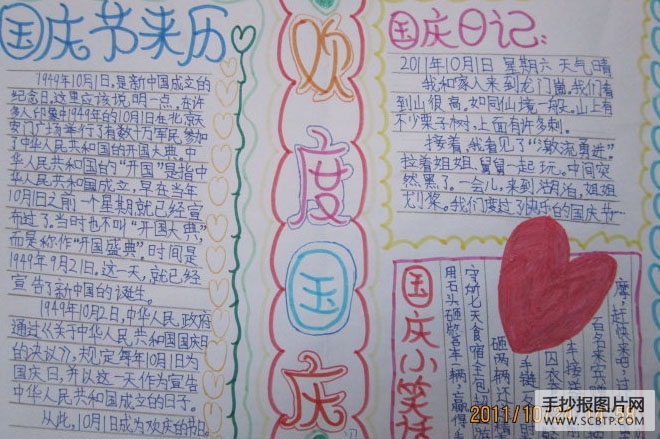 国庆节来历
1949年10月1日,是新中国成立的
纪念日。这里应该说明一点,在许
多人印象中1949年的10月1日在北京天
安门广场举行了有数十万军民参加
了中华人民共和国的开国大典。中
华人民共和国的"开国"是指中
华人民共和国成立,早在当年
10月1日之前一个星期就已经宣
布过了。当时也不叫"开国大典",
而是称作"开国盛典"。时间是
1949年9月21日。这一天,就已经
宣告了新中国的诞生。
1949年10月2日,中华人民政府
通过《关于中华人民共和国国庆日
的决议》,规定每年10月1日为
国庆日,并以这一天作为宣告
中华人民共和国成立的日子。
从此,10月1日成为欢庆的节日。
欢度国庆
国庆日记:
2011年10月1日 星期六 天气晴
我和家人来到龙门崮。我们看
到山很高,如同仙境一般。山上有
不少栗子树,上面有许多刺。
接着,我看见了"激流勇进"。
拉着姐姐,舅舅一起玩。中间突
然黑了。一会儿,来到湖泊,姐姐
划桨。我们度过了快乐的国庆节
国庆小笑话
穷娇七天食宿全包
用石头砸警车一辆,赢得
砸两辆
2011/10
手抄报图片网
WWW.SCBTP.COM